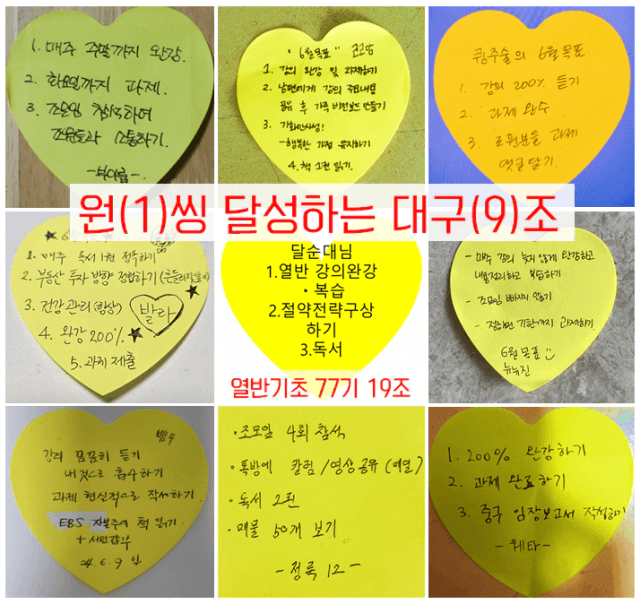 1. 매주 주말까지 완강.
2. 화요일까지 과제.
3. 조모임 참석하여
조원들과 소통하기.
"6월목표"
1. 강의 완강 및 과제하기
2. 남편에게 강의 주요내용
공유 후 가족 비전보드 만들기
3. 가화만사성!
-행복한 가정 유지하기
4. 책 1권 읽기.
퀑주술의 6월목표
1. 강의 200% 듣기
2. 과제 완수
3. 조원분들 과제
댓글달기.
원(1)씽 달성하는 대구(9)조
1. 매주 독서 1권 정독하기
2. 부동산 투자 방향 정립하기
3. 건강관리(항상)
발라
4. 완강 200%
5. 과제 제출
달순대님
1.열반 강의완강
• 복습
2.절약전략구상
하기
3.독서
열반기초 77기 19조
- 매주 강의 놓치지 않게 완강하고
내용정리하고 복습하기
- 조모임 빠지지 않기
- 정해진 기한까지 과제하기
6월 목표
뉴뉴진
강의 꼼꼼히 듣기
내것으로 흡수하기
과제 헌신적으로 작성하기.
EBS 자본주의 책 읽기.
+ 서민갑부
24. 6. 9 일
· 조모임 4회 참석
· 톡방에 칼럼/영상공유 (매일)
· 독서 2권
· 매물 50개 보기
- 정룩 12 -
1. 200% 완강하기
2. 과제 완료하기
3. 중구 임장보고서 작성하기
- 헤타 -